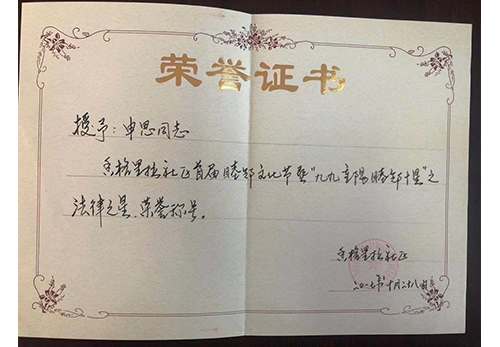 荣誉证书
授予：申思同志
香格里拉社区首届睦邻文化节暨“九九重阳睦邻十星”之
法律之星，荣誉称号。
香格里拉社区
二〇一七年十月二十八日